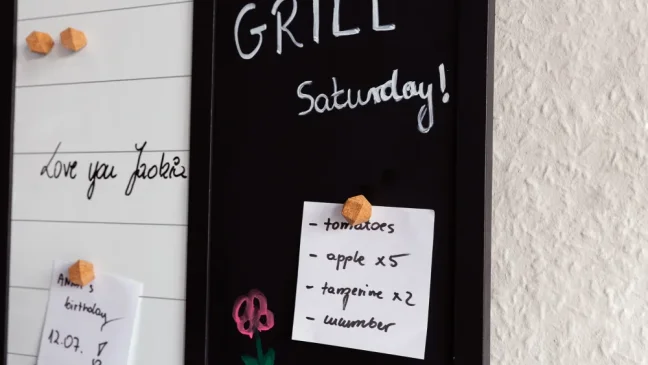 GRILL
Saturday!
Love you
birthday
12.07.
- tomatoes
- apple x5
- tangerine x2
- cucumber